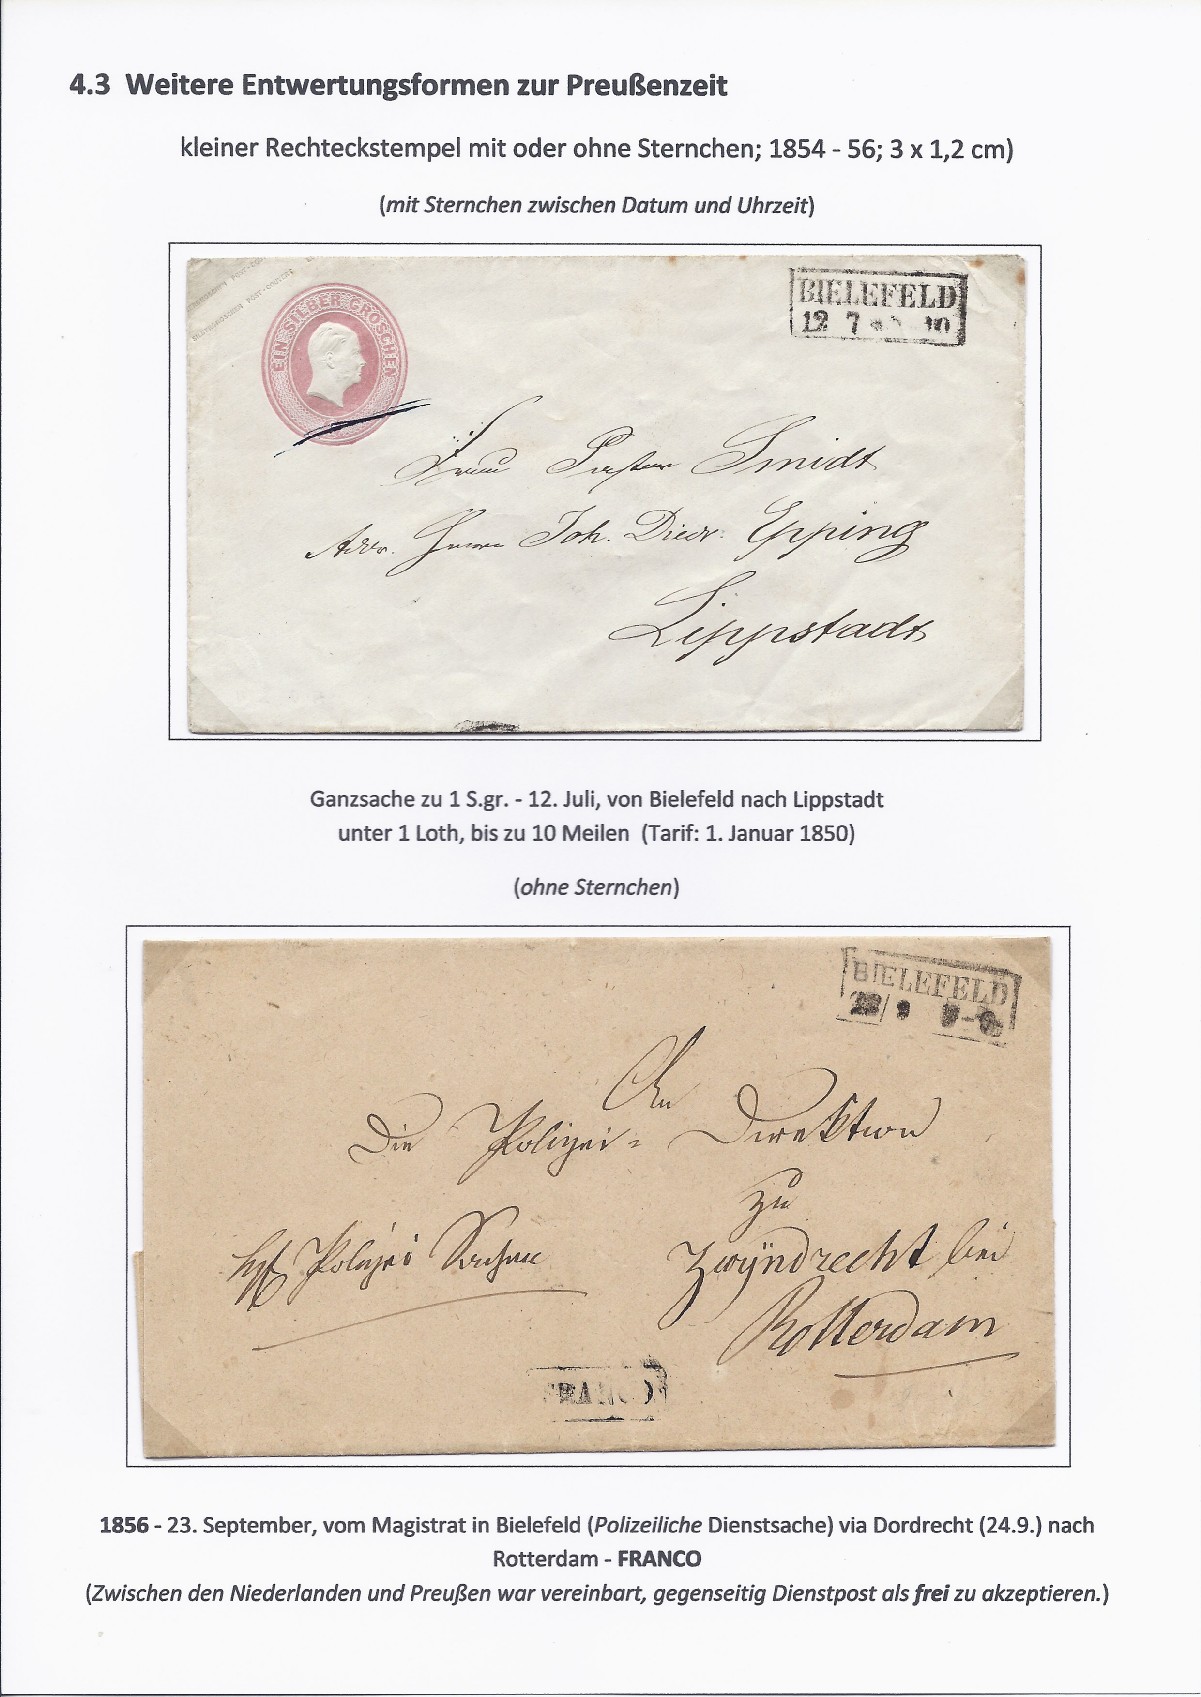 4.3 Weitere Entwertungsformen zur Preußenzeit
kleiner Rechteckstempel mit oder ohne Sternchen; 1854 - 56; 3 x 1,2 cm)
(mit Sternchen zwischen Datum und Uhrzeit)
EIN SILBER GROSCHEN
BIELEFELD
12 7 10
Frau Pastor Smidt
Adr. Herrn Joh. Diedr. Epping
Lippstadt
Ganzsache zu 1 S.gr. - 12. Juli, von Bielefeld nach Lippstadt
unter 1 Loth, bis zu 10 Meilen (Tarif: 1. Januar 1850)
(ohne Sternchen)
BIELEFELD
23 9
An
Die Polizei= Direktion
zu
Polizei Sachen
Zwÿndrecht bei
Rotterdam
FRANCO
1856 - 23. September, vom Magistrat in Bielefeld (Polizeiliche Dienstsache) via Dordrecht (24.9.) nach
Rotterdam - FRANCO
(Zwischen den Niederlanden und Preußen war vereinbart, gegenseitig Dienstpost als frei zu akzeptieren.)